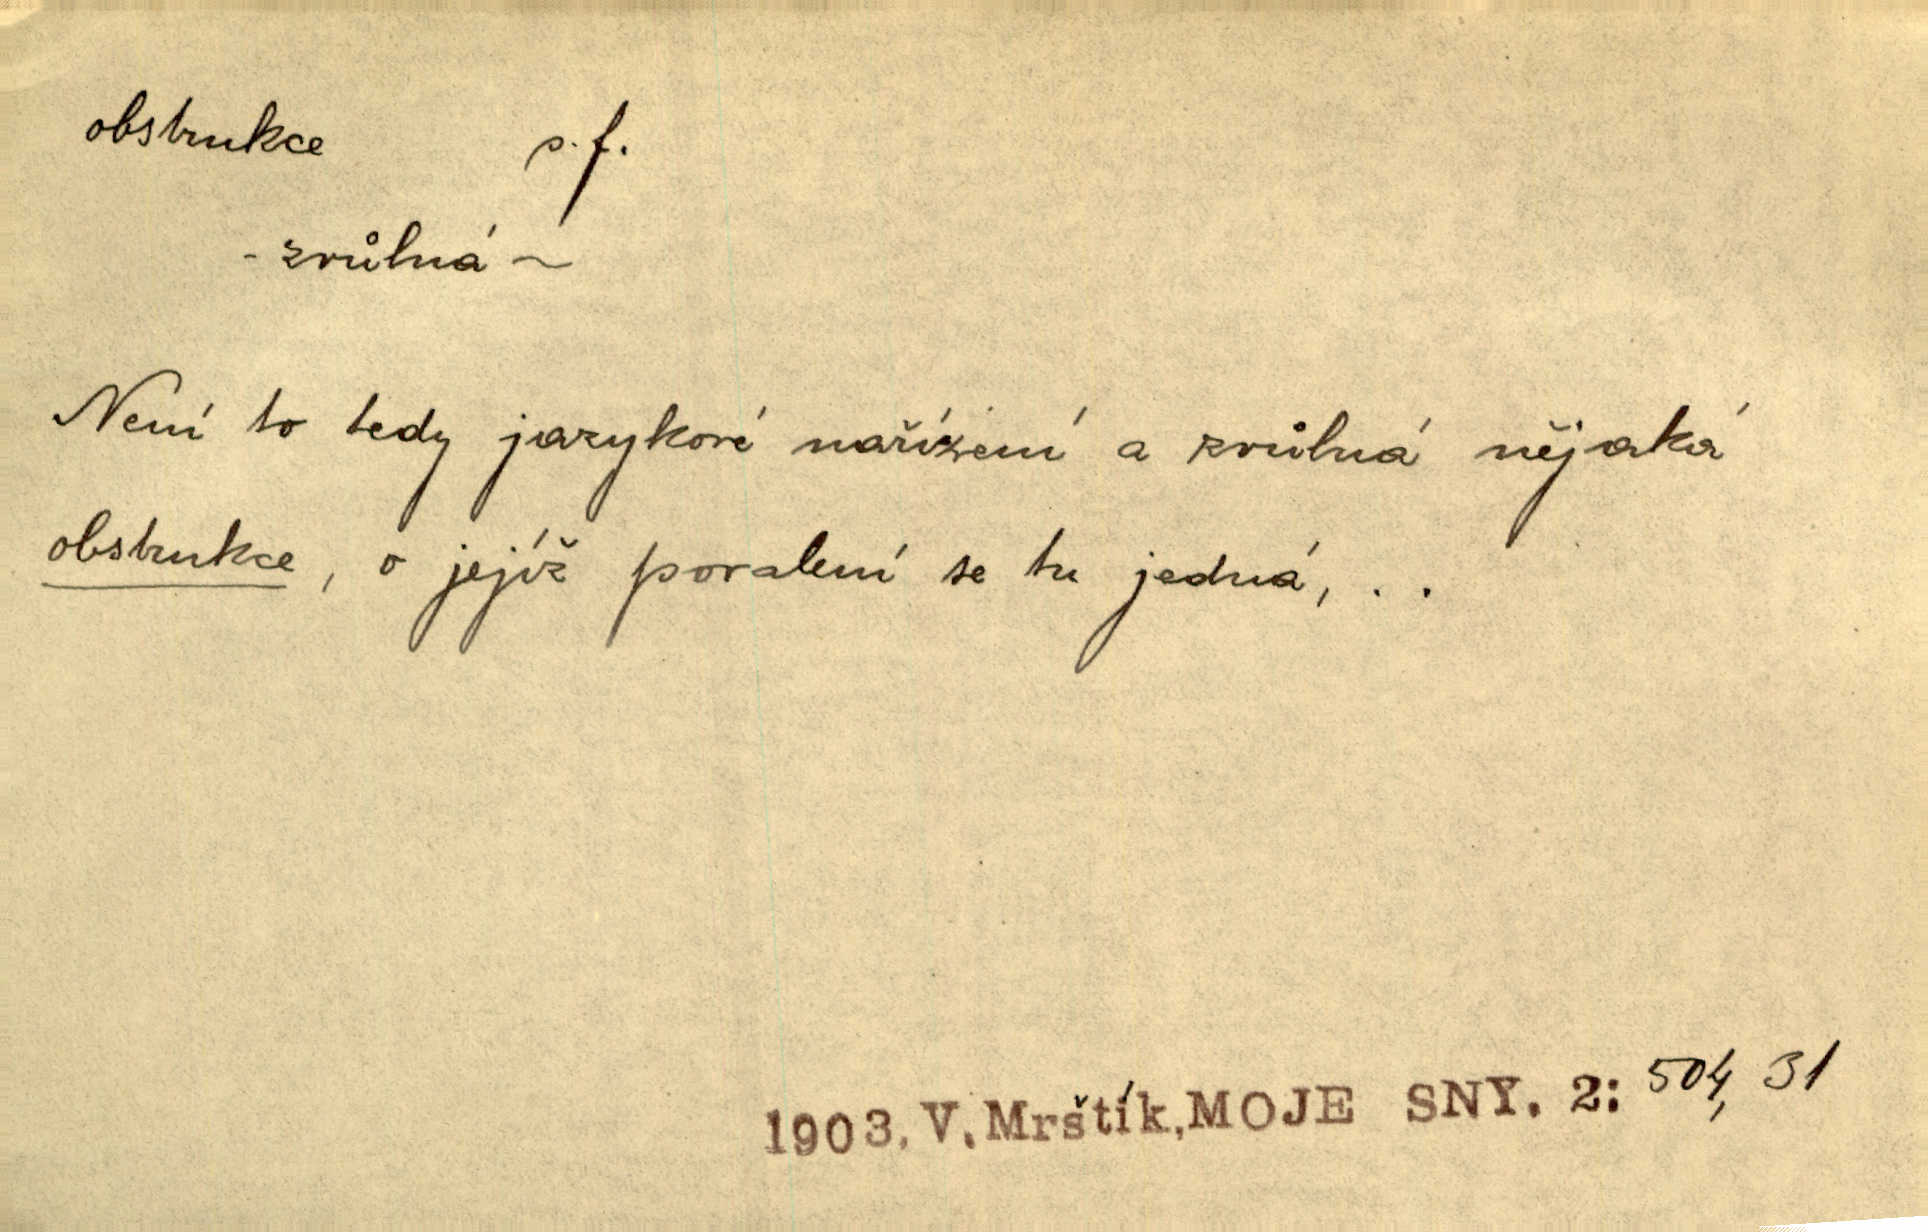 obstrukce s. f.
- zvůlná ~
Není to tedy jazykové nařízení a zvůlná nějaká
obstrukce, o jejíž povalení se tu jedná, . .
1903. V. Mrštík, MOJE SNY. 2: 504, 31